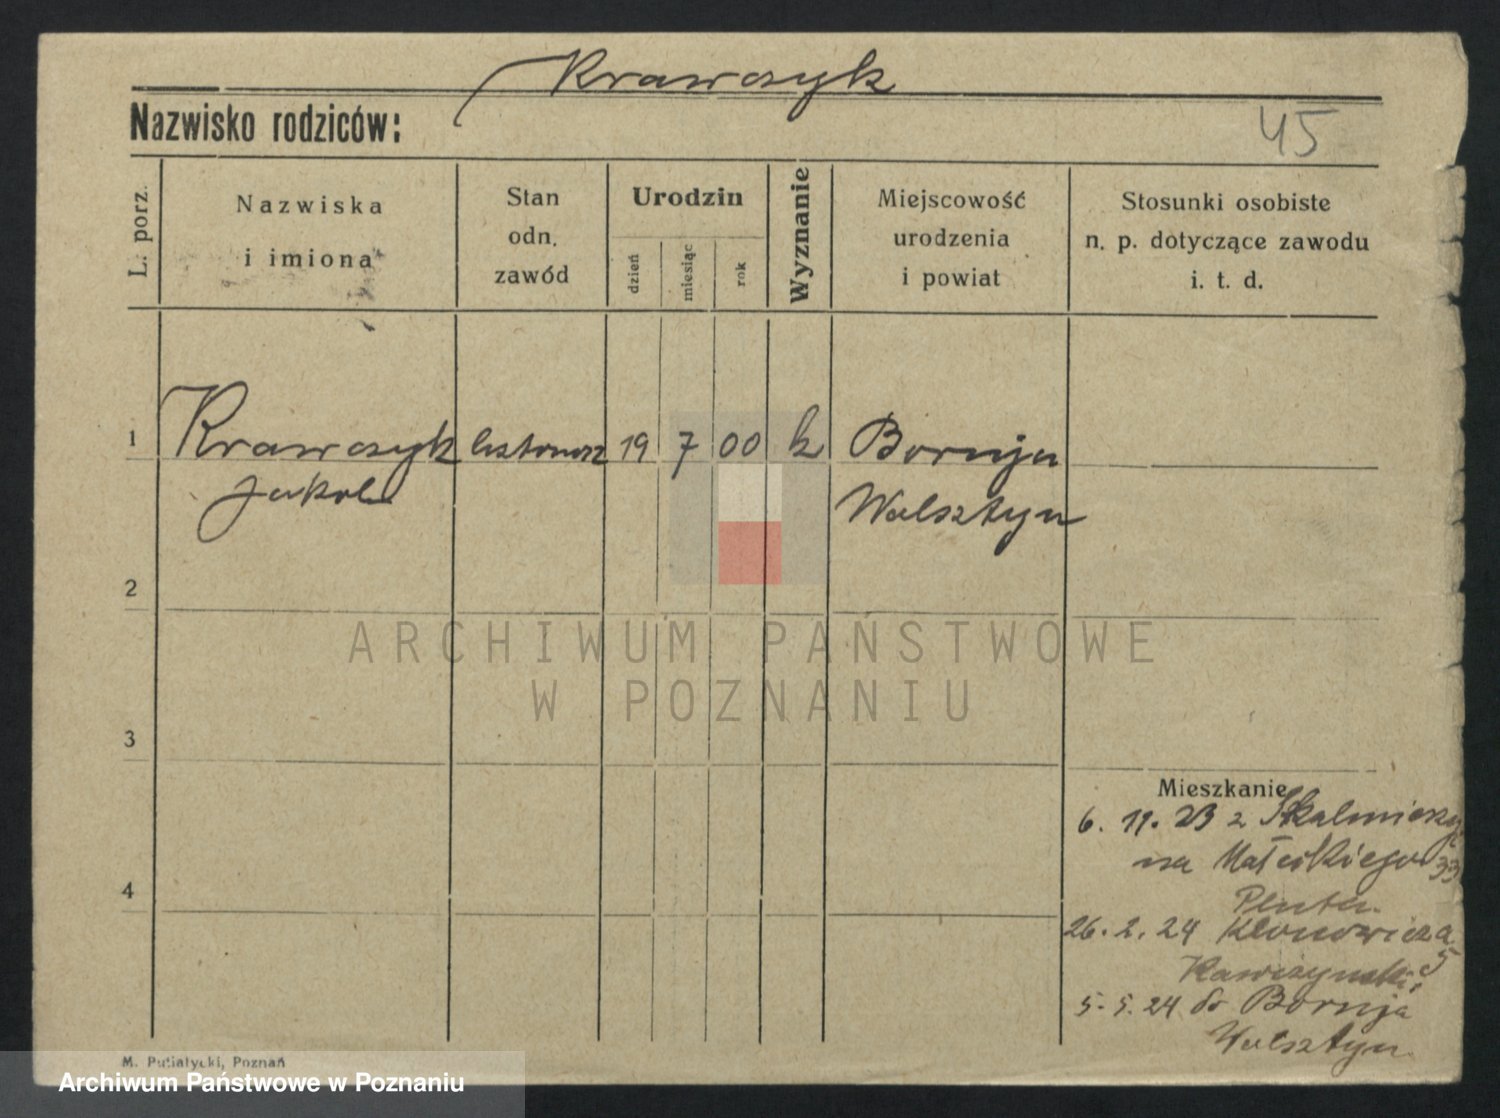 Krawczyk
Nazwisko rodziców:
45
L. porz.
Nazwiska
i imiona
Stan
odn.
zawód
Urodzin
dzień
miesiąc
rok
Wyznanie
Miejscowość
urodzenia
i powiat
Stosunki osobiste
n. p. dotyczące zawodu
i. t. d.
1 Krawczyk listonosz 19 7 00 k Bornja
Jakob Wolsztyn
2
ARCHIWUM PAŃSTWOWE
W POZNANIU
3
Mieszkanie
6. 11. 23 z Skalmierzyc
na Małeckiego 33
4
Pluta.
26. 2. 24 Klonowicza 5
5. 5. 24 do Bornja
Wolsztyn
M. Putiatycki, Poznań
Archiwum Państwowe w Poznaniu